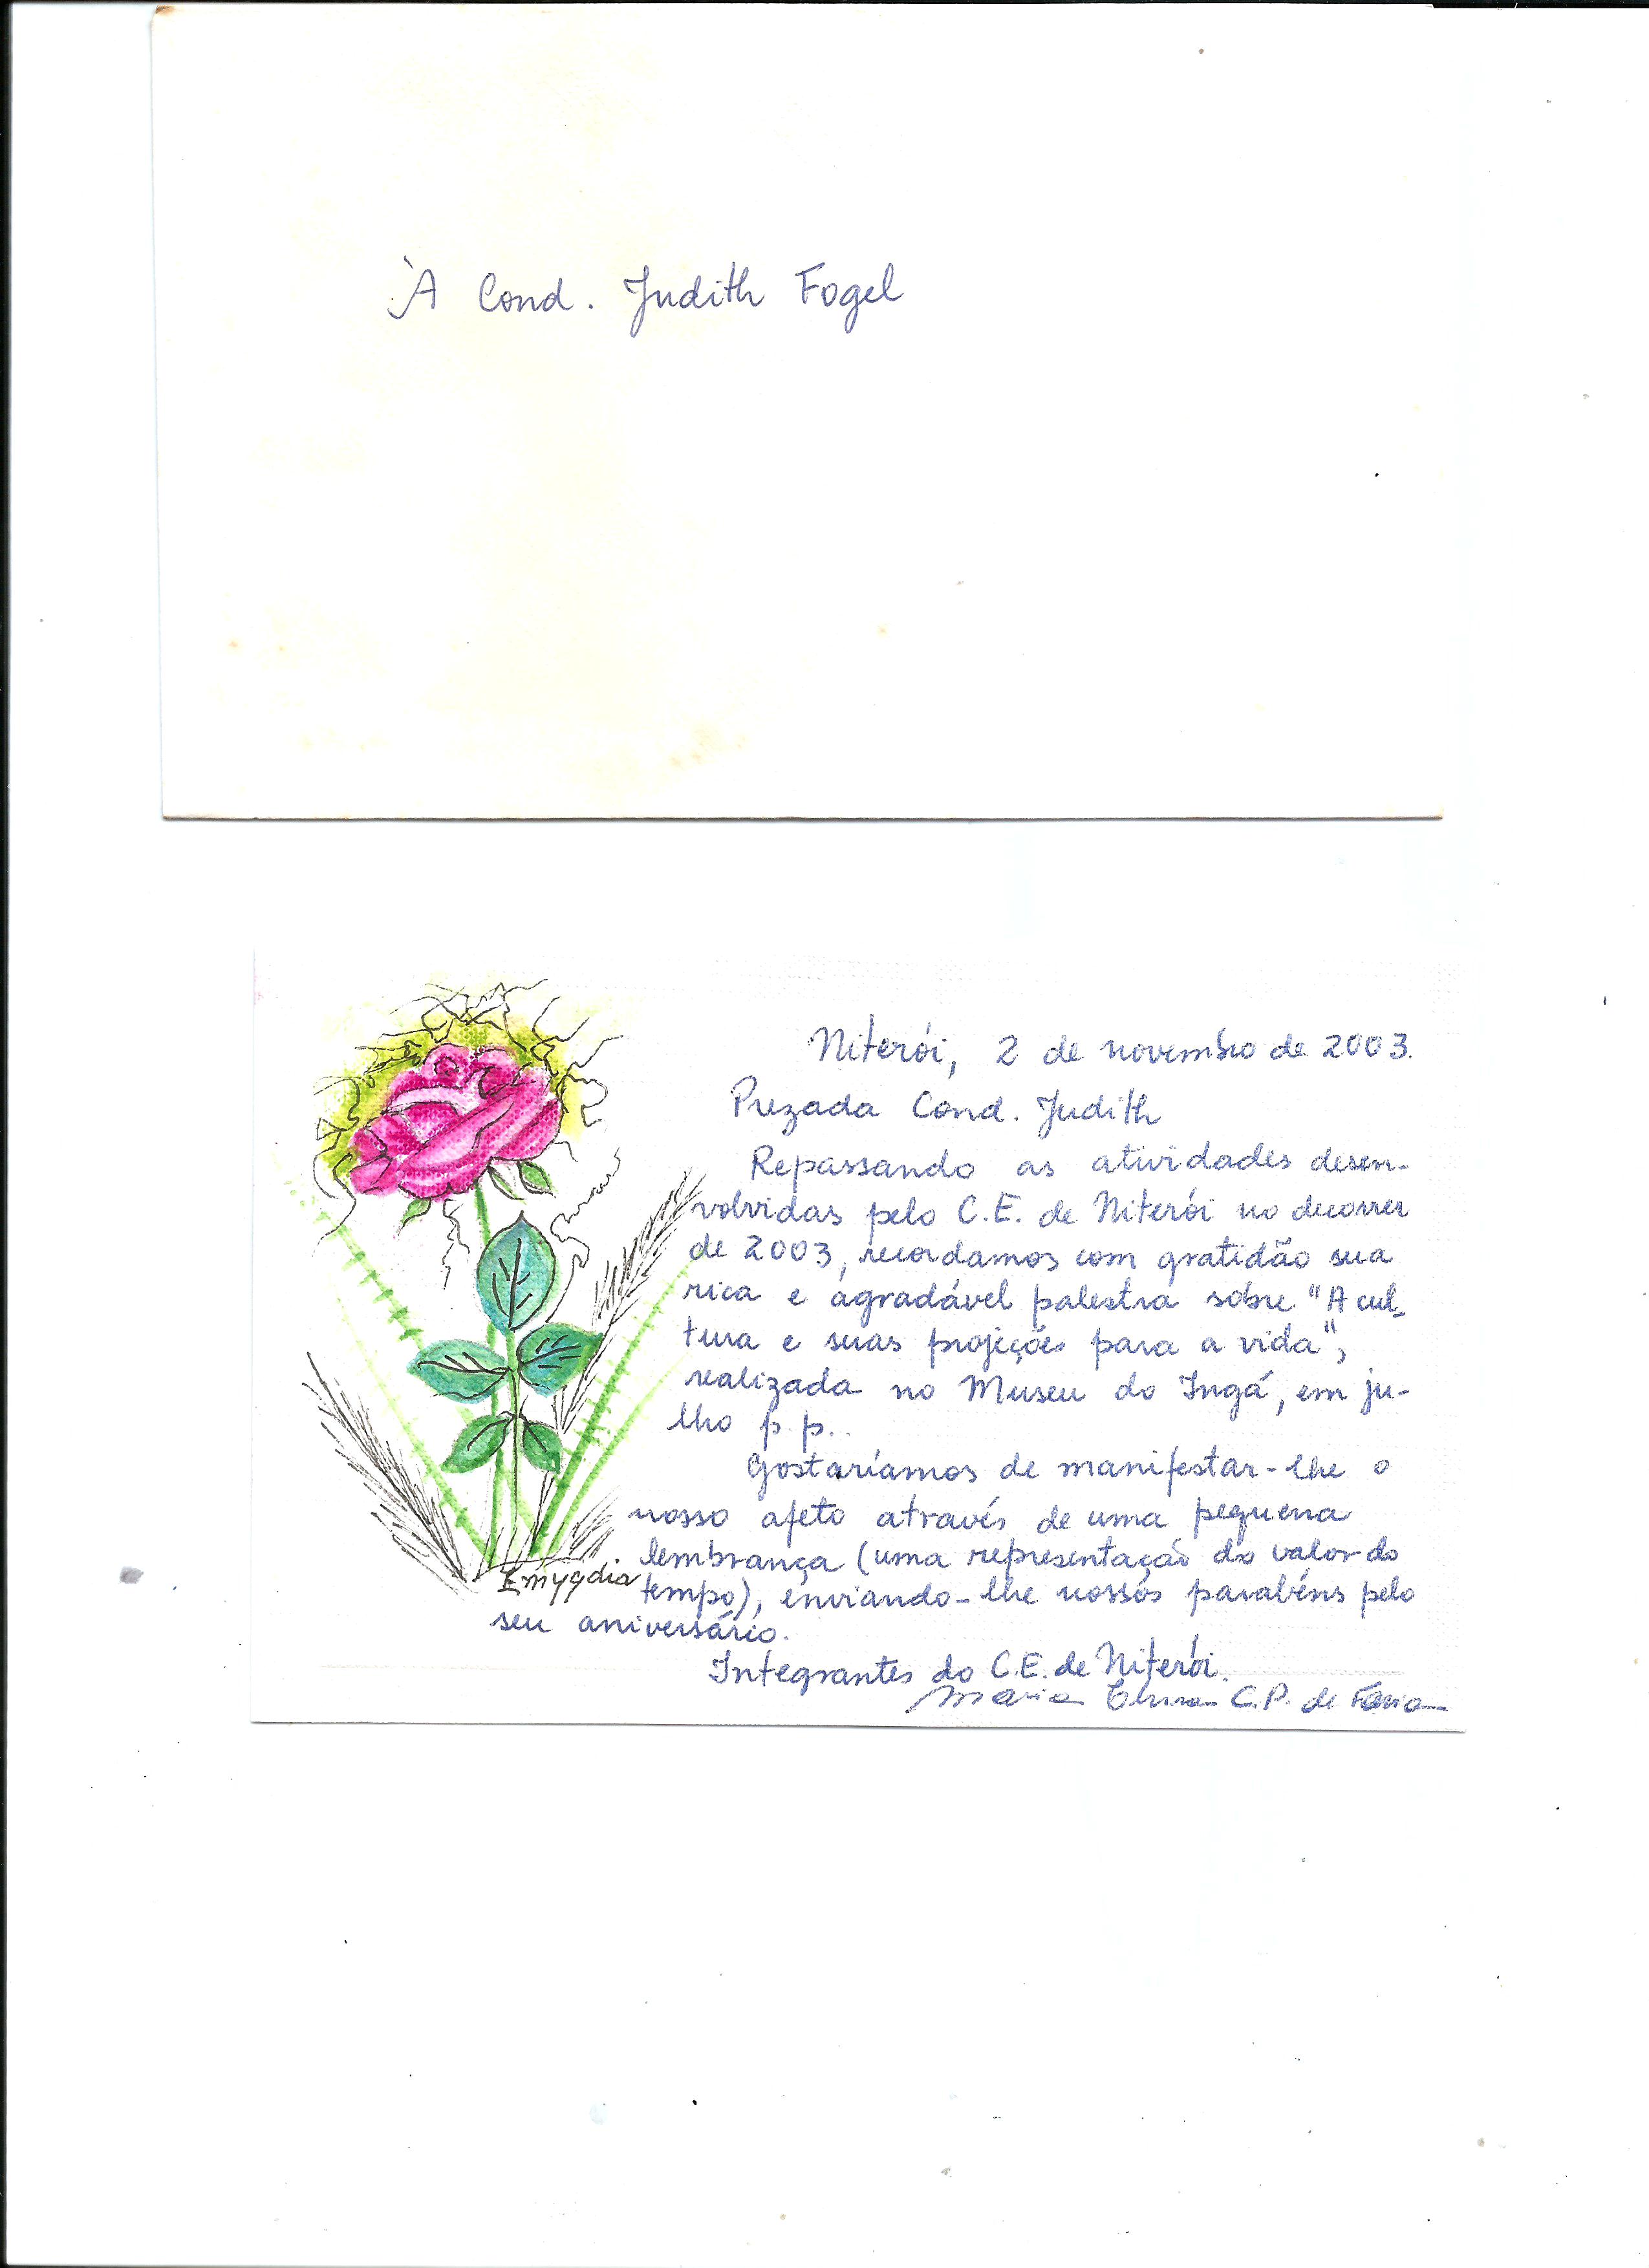 À Cond. Judith Fogel
Niterói, 2 de novembro de 2003.
Prezada Cond. Judith
Repassando as atividades desen-
volvidas pelo C.E. de Niterói no decorrer
de 2003, recordamos com gratidão sua
rica e agradável palestra sobre "A cul-
tura e suas projeções para a vida",
realizada no Museu do Ingá, em ju-
lho p.p..
Gostaríamos de manifestar-lhe o
nosso afeto através de uma pequena
lembrança (uma representação do valor do
tempo), enviando-lhe nossos parabéns pelo
seu aniversário.
Emygdia
Integrantes do C.E. de Niterói.
Maria C.P. de Faria